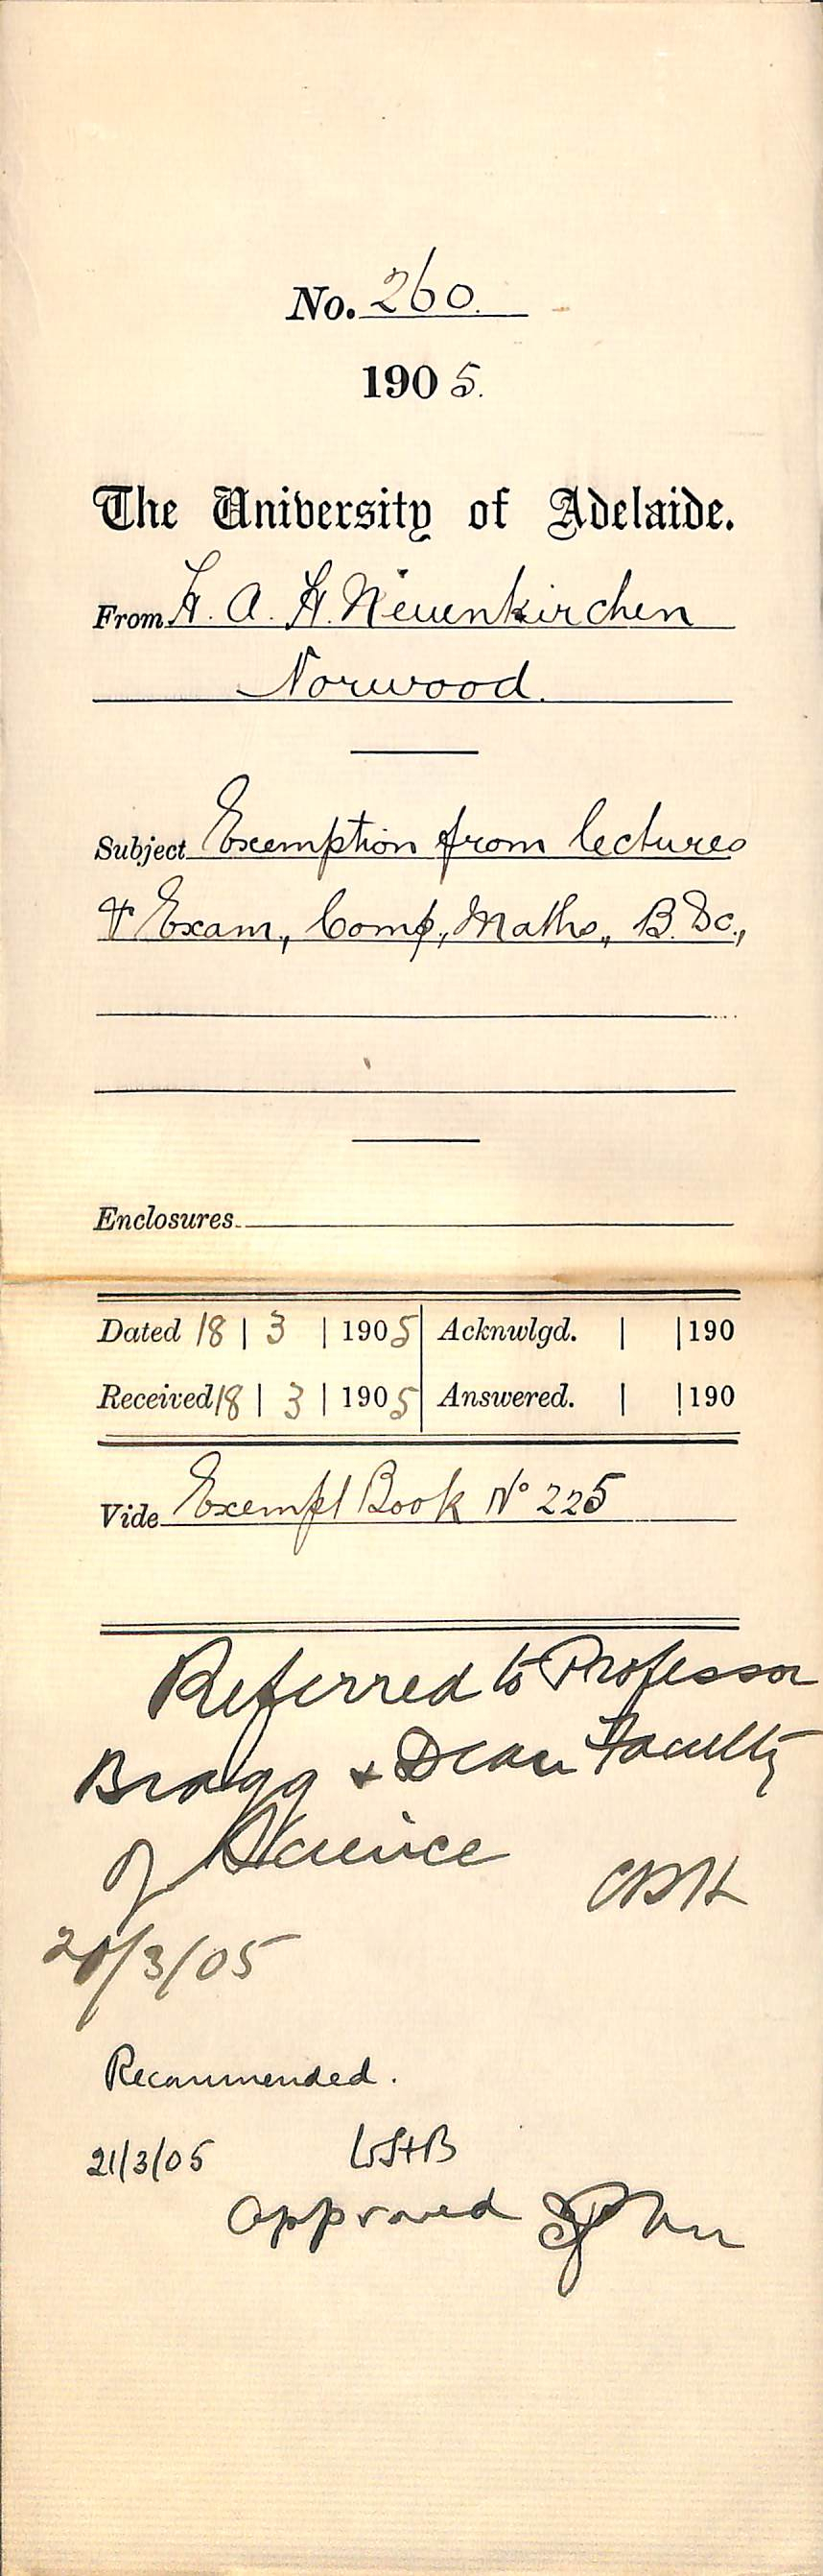 No. 260.
1905.
The University of Adelaide.
From H. A. H. Nieuenkirchen
Norwood.
Subject Exemption from lectures
& Exam, Comp, Maths, B.Sc.,
Enclosures
Dated 18 | 3 | 1905 | Acknwlgd. | | 190
Received 18 | 3 | 1905 | Answered. | | 190
Vide Exempt Book No 225
Referred to Professor
Bragg & Dean Faculty
of Science
20/3/05
Recommended.
21/3/05 WHB
approved